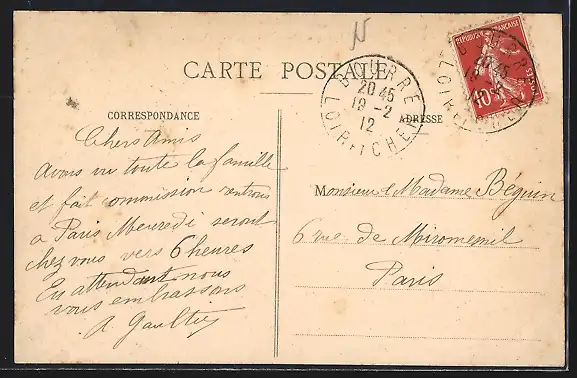 CARTE POSTALE
CORRESPONDANCE
Chers Amis
Avons vu toute la famille
et fait commission rentrons
a Paris Mercredi seront
chez vous vers 6 heures
En attendant nous
vous embrassons
A. Gaultier
ADRESSE
Monsieur & Madame Béguin
6 rue de Miromesnil
Paris
BOURRÉ
20 45
19 - 2
12
LOIR-ET-CHER
REPUBLIQUE FRANÇAISE
POSTES
10